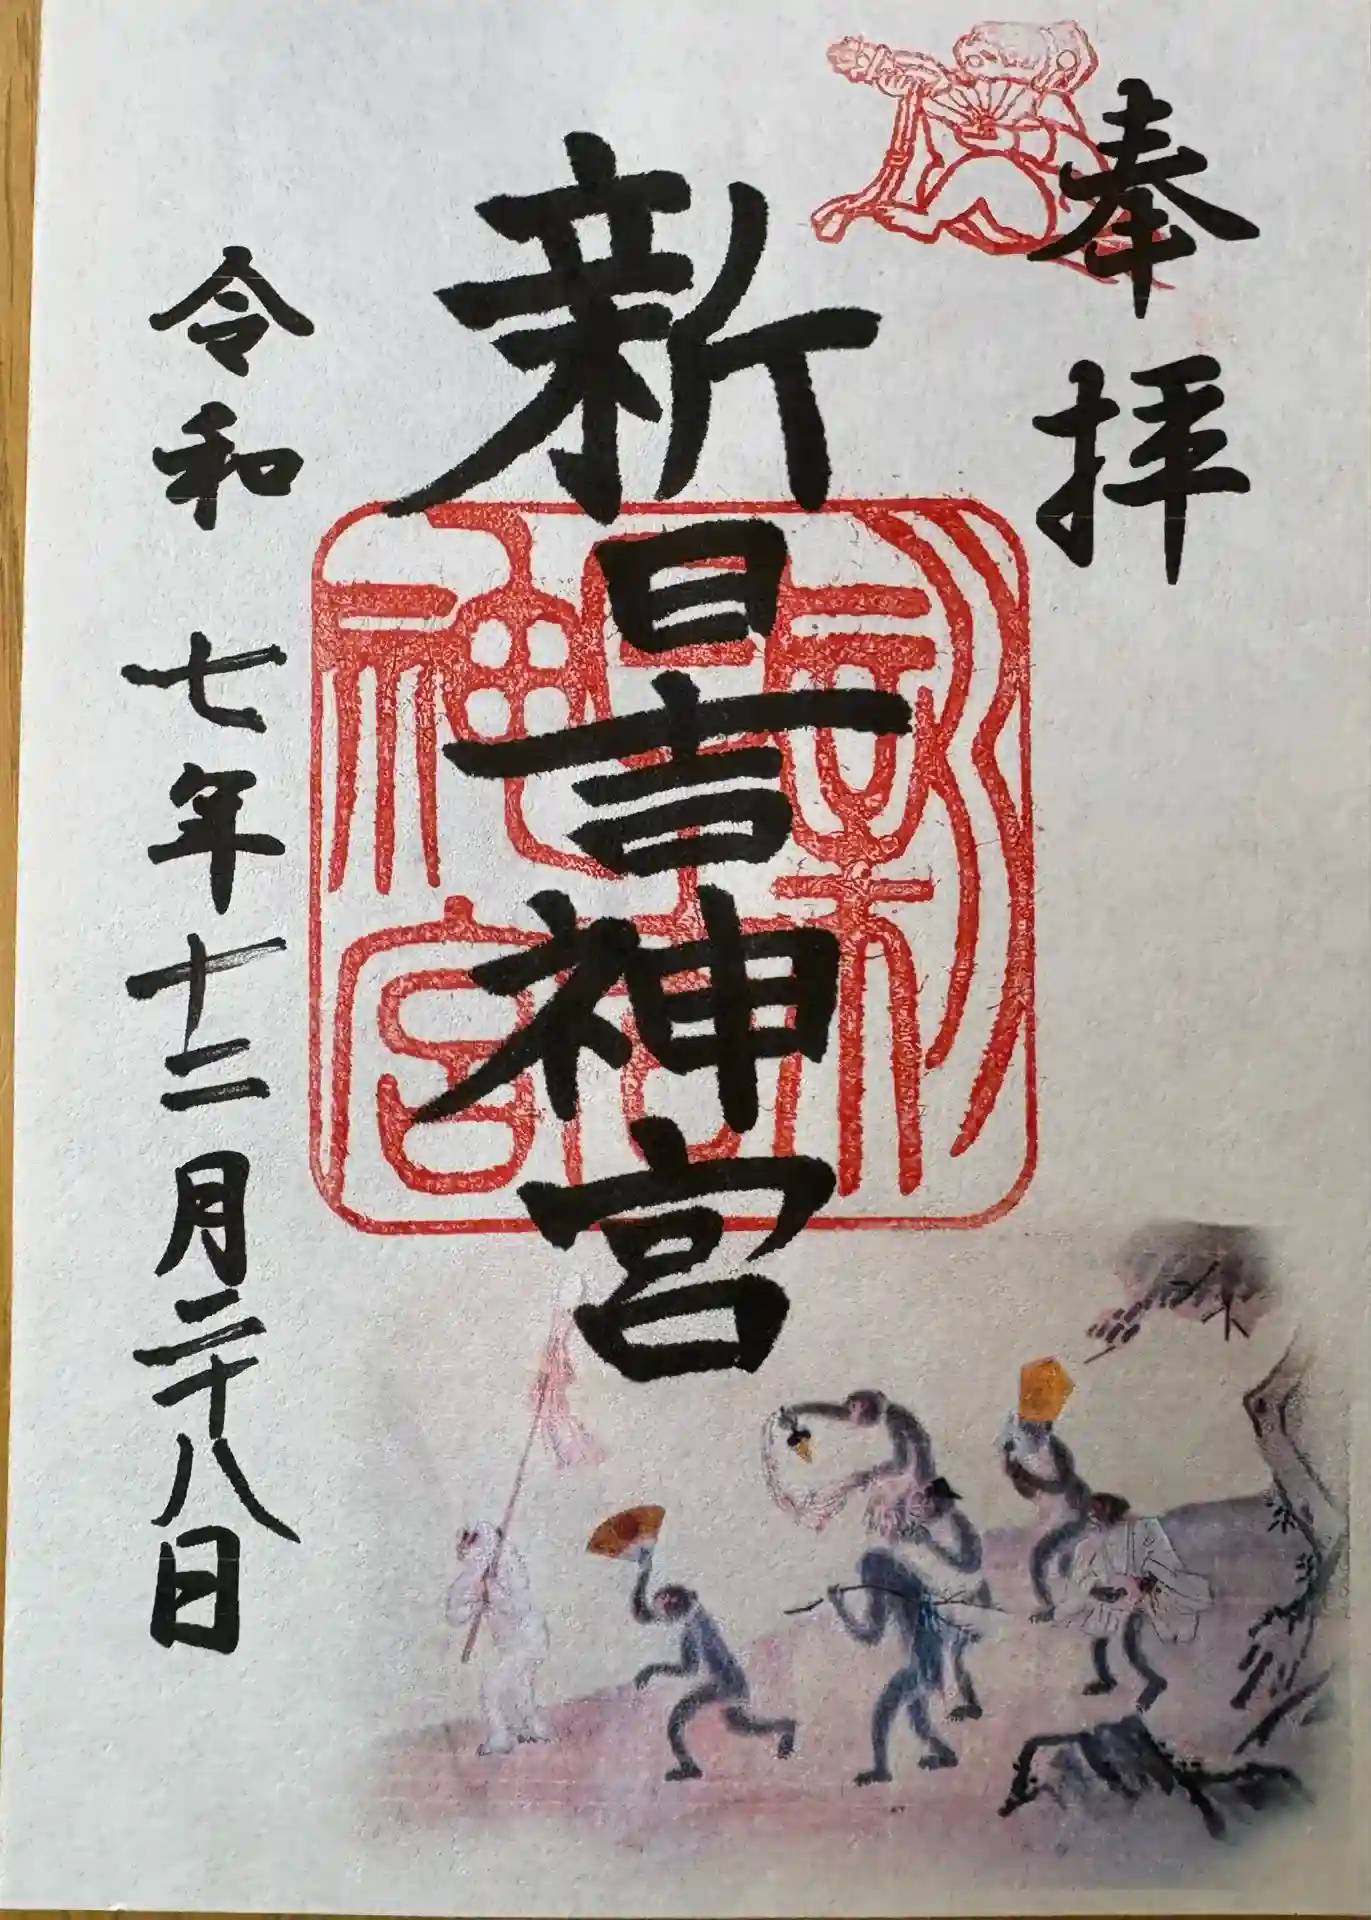 奉拝
新日吉神宮
新日吉神宮
令和七年十二月二十八日